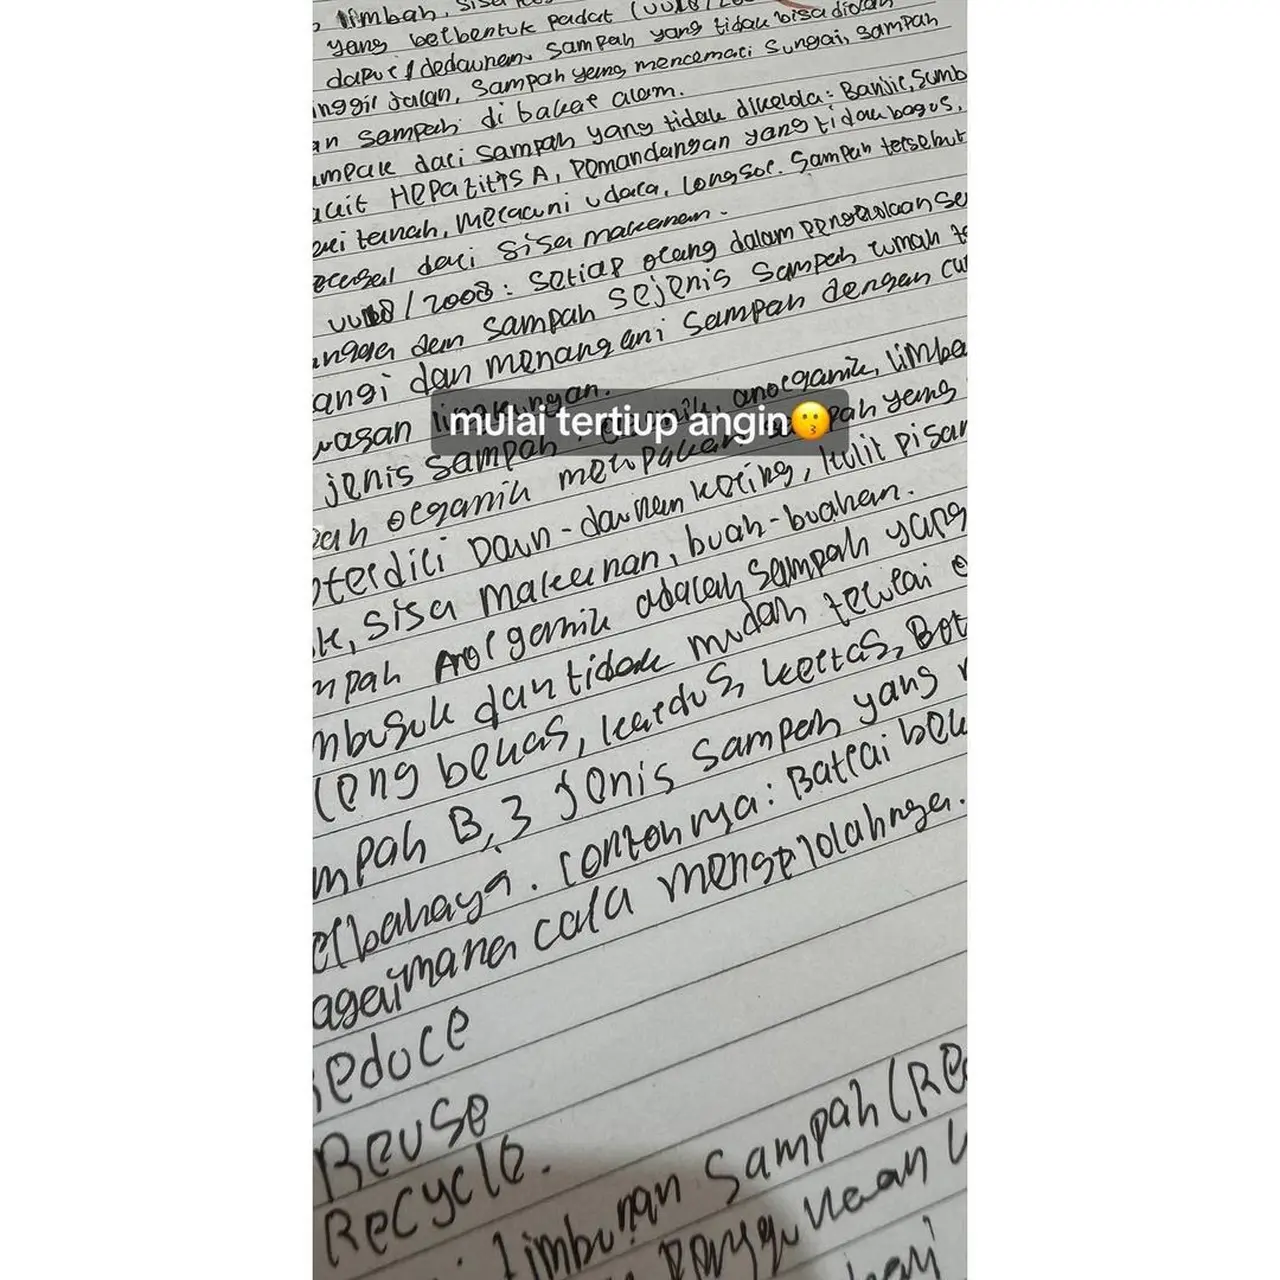 limbah, sisa
yang belbentuk padat (UU18/20
dapur/dedaunan. Sampah yang tidak bisa diolah
inggir Jalan, Sampah yang mencemari sungai, sampah
an sampah di bakar alam.
ampak dari sampah yang tidak dikelola: Banjir, sumb
akit HEPatitis A, pemandangan yang tidak bagus,
ari tanah, Meracuni udara, Longsor. Sampah tersebut
berasal dari sisa makanan.
UU18/2008: Setiap orang dalam pengelolaan se
angga dan sampah sejenis sampah rumah t
angi dan menangani Sampah dengan ca
wasan lingkungan.
jenis sampah: organik, anorganik, limba
mulai tertiup angin😗
pah organik merupakan sampah yang
terdiri Daun-daunan kering, kulit pisan
k, Sisa makanan, buah-buahan.
mpah Anorganik adalah Sampah yang
mbusuk dan tidak mudah terurai
leng bekas, kardus, kertas, Bot
mpah B,3 Jenis Sampah yang
erbahaya. Contohnya: Batrai bek
agaimana cara mengelolahnya.
Reduce
Reuse
Recycle.
timbunan Sampah (Re
Penggunaan